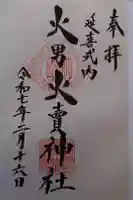 奉拝
延喜式内
火男火賣神社
令和七年二月十六日